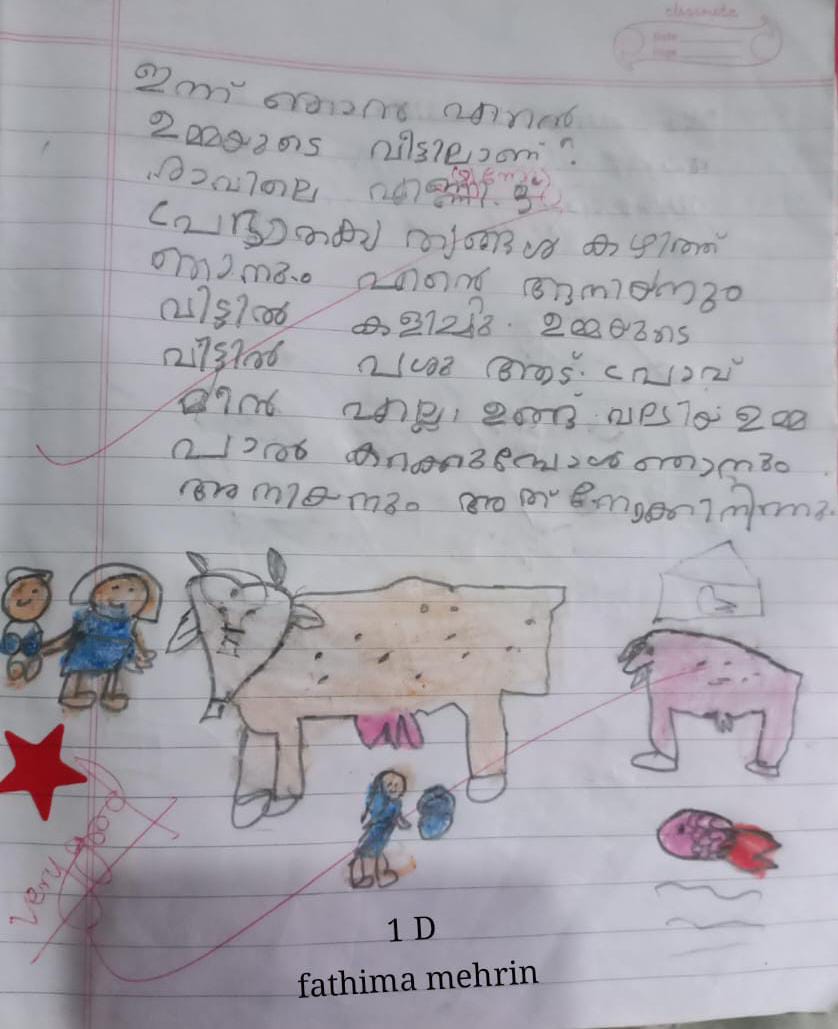 classmate
Date
Page
ഇന്ന് ഞാൻ എൻറെ
ഉമ്മയുടെ വീട്ടിലാണ്.
രാവിലെ എണീ
ഞാനും എൻറെ അനിയനും
വീട്ടിൽ കളിച്ചു. ഉമ്മയുടെ
വീട്ടിൽ പശു ആട്. പ്രാവ്
മീൻ എല്ലാ ഉണ്ട് വലിയ ഉമ്മ
പാൽ കറക്കുമ്പോൾ ഞാനും
അനിയനും അത് നോക്കിനിന്നു.
very good
1 D
fathima mehrin